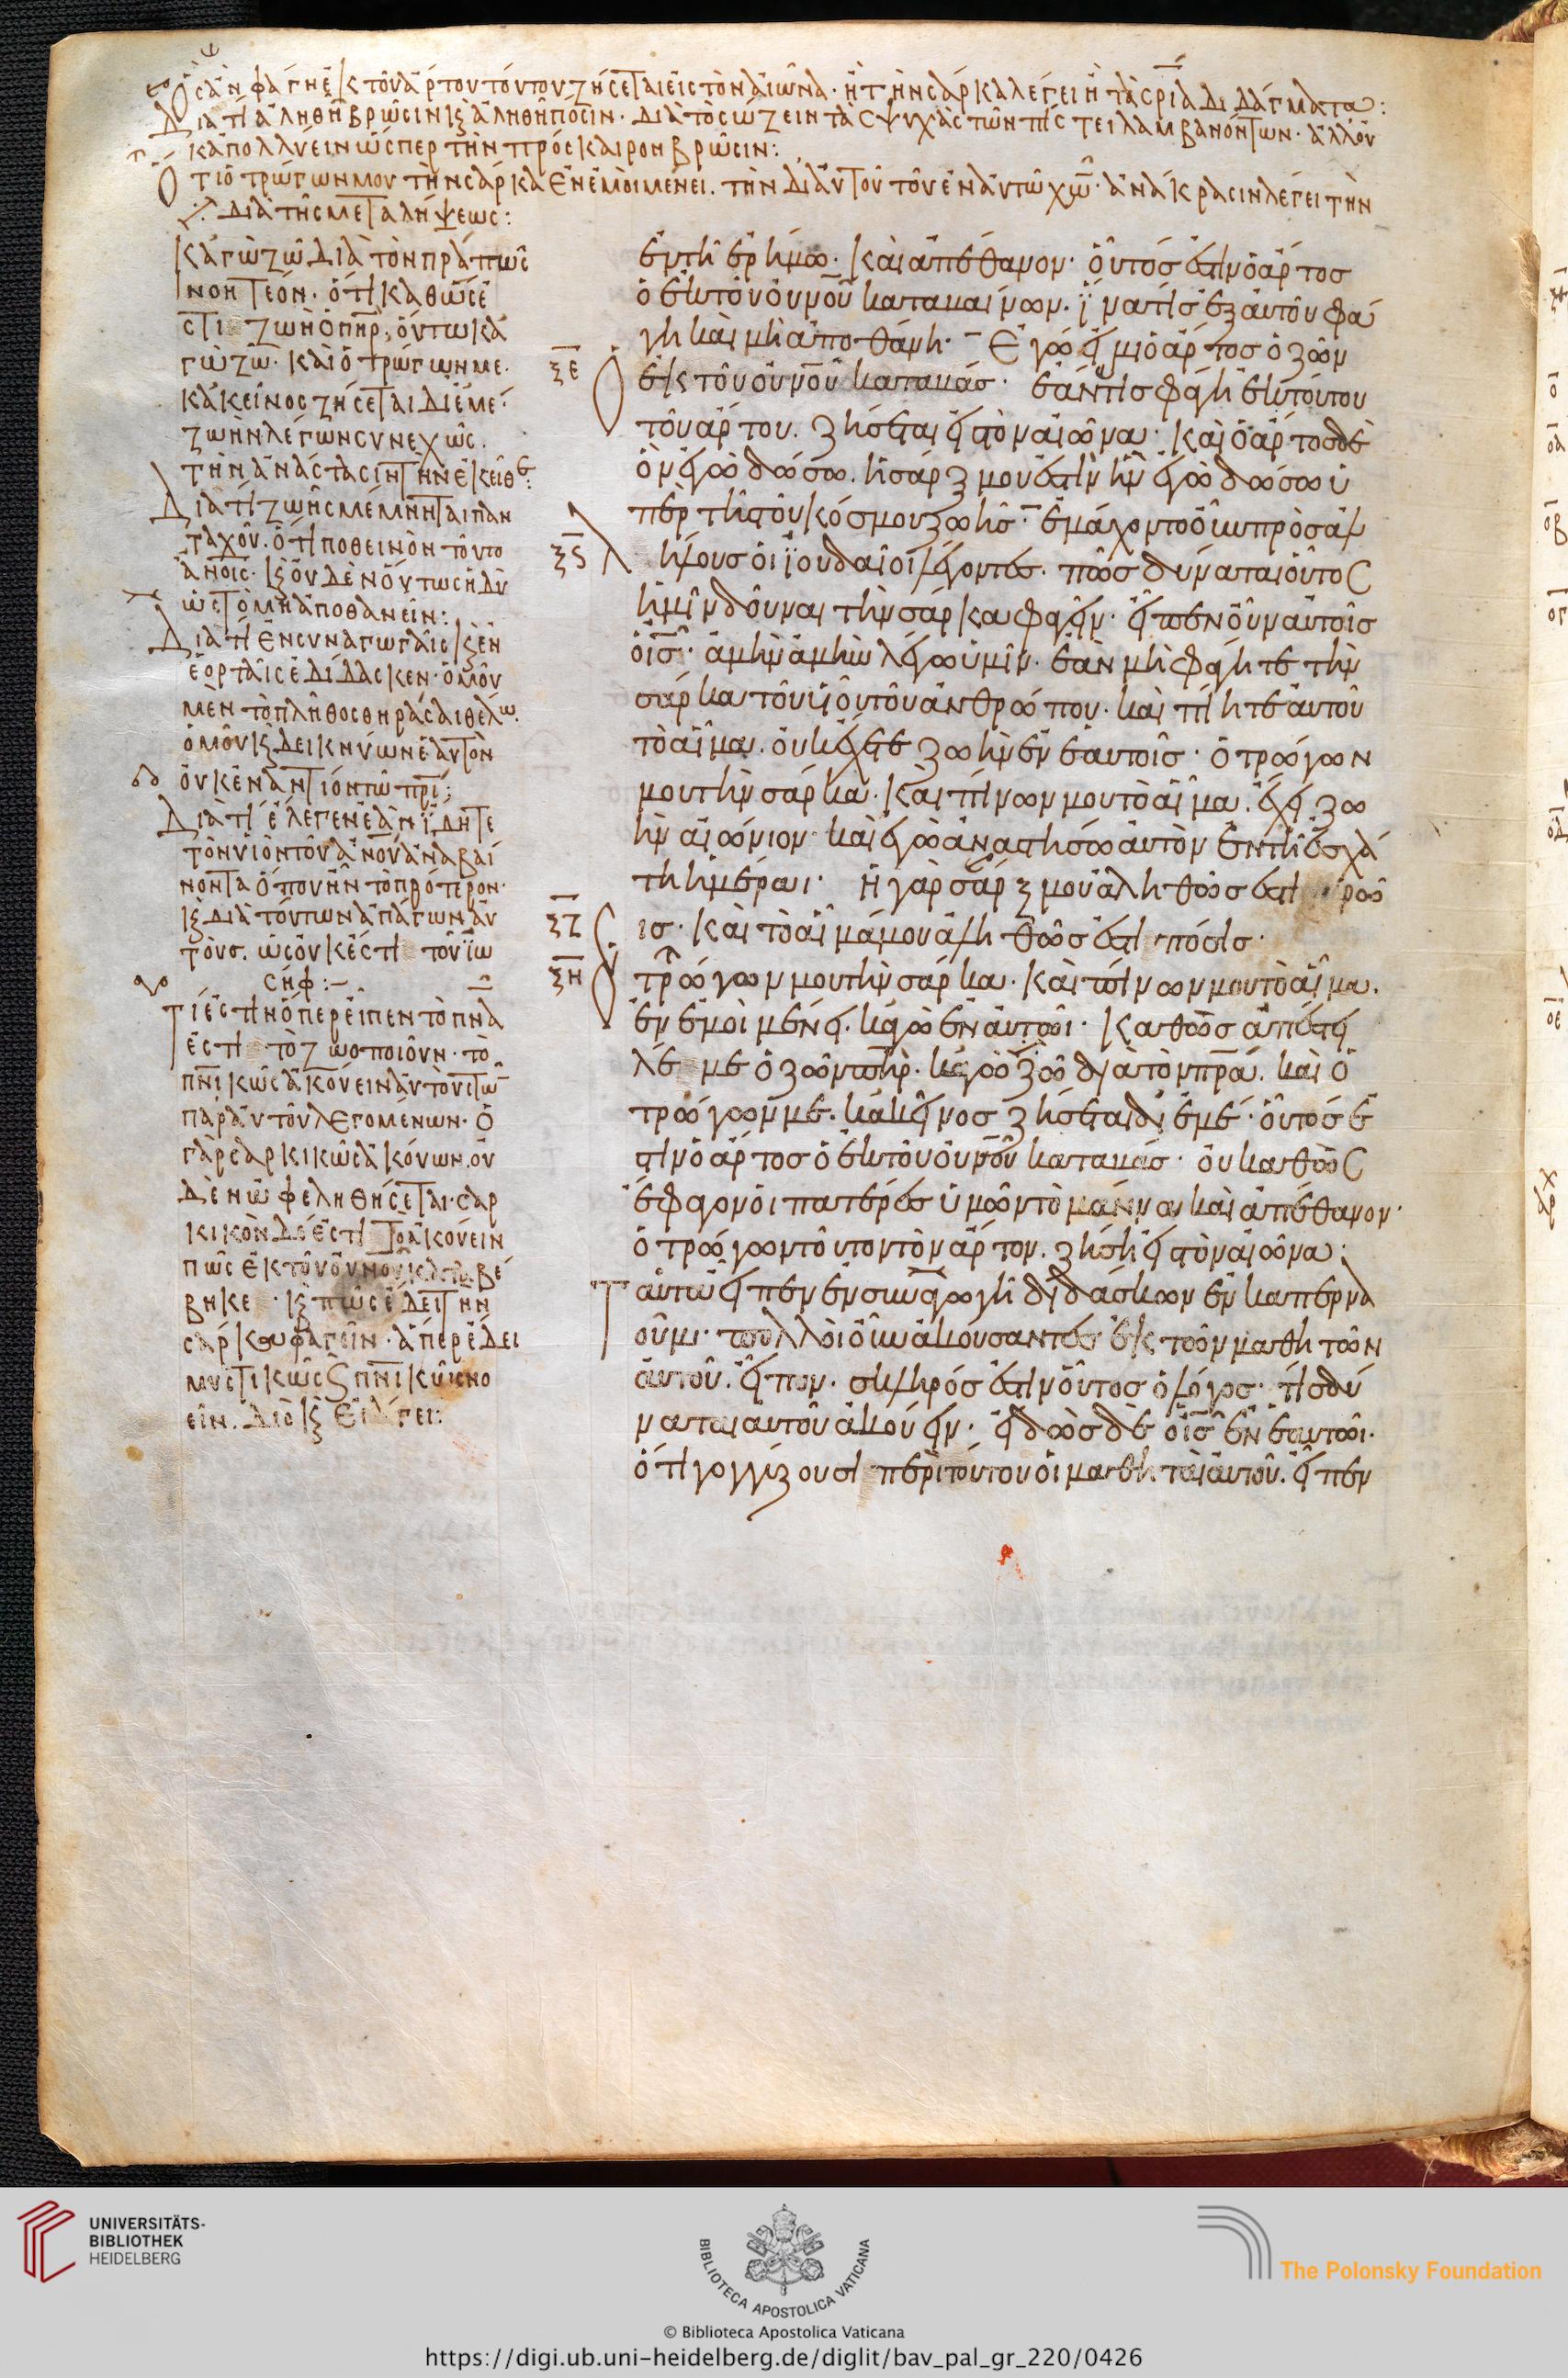 ὃς ἂν φάγῃ ἐκ τοῦ ἄρτου τούτου ζήσεται εἰς τὸν αἰῶνα· ἢ τὴν σάρκα λέγει ἢ τὰ σρια διδάγματα:
Διατί ἀληθῆ βρῶσιν κ ἀληθῆ πόσιν· διὰ τὸ σώζειν τὰς ψυχὰς τῶν πίστει λαμβανόντων· ἀλλ οὐ
κ ἀπολλύειν ὥσπερ τὴν πρόσκαιρον βρῶσιν:
ὅτι ὁ τρώγων μου τὴν σάρκα ἐν ἐμοὶ μένει. τὴν δι αὐτοῦ τοῦ ἐν αὐτῶ χω· ἀνάκρασιν λέγει τὴν
διὰ τῆς μεταλήψεως:
κἀγὼ ζῶ διὰ τὸν πρα πῶς
νοητέον· ὅτι καθὼς ἐ
στι ζωὴ ὁ πηρ, οὕτω κἀ
γὼ ζῶ· καὶ ὁ τρώγων με.
κἀκεῖνος ζήσεται δι ἐμέ·
ζωὴν λέγων συνεχῶς.
τὴν ἀνάστασιν τὴν ἐκεῖθε:
Διατί ζωῆς μέμνηται παν
ταχοῦ. ὅτι ποθεινὸν τοῦτο
ἀνοις· κ οὐδὲν οὕτως ἡδὺ
ὡς τὸ μὴ ἀποθανεῖν:
Διατί ἐν συναγωγαῖς κ ἐν
ἑορταῖς ἐδίδασκεν· ὁμοῦ
μὲν τὸ πλῆθος θηρᾶσαι θέλω.
ὁμοῦ κ δεικνύων ἑαυτὸν
οὐκ ἐναντίον τῶ πρι:
Διατί ἔλεγεν ἐὰν ἴδητε
τὸν υἱὸν τοῦ ανου ἀναβαί
νοντα ὅπου ἦν τὸ πρότερον·
κ διὰ τούτων ἀπάγων αὐ
τοὺς. ὡς οὐκ ἔστι τοῦ ἰω
σήφ:
Τί ἐστιν ὅπερ εἶπεν τὸ πνα
ἐστι τὸ ζωοποιοῦν· τὸ
πνικῶς ἀκούειν αὐτοῦ τῶ
παρ αὐτοῦ λεγομένων· ὁ
γὰρ σαρκικῶς ἀκούων. οὐ
δὲν ὠφεληθήσεται· σαρ
κικὸν δέ ἐστι τὸ ἀκούειν
πῶς ἐκ τοῦ οὐνου καταβέ
βηκε · κ πῶς ἔδει τὴν
σάρκα φαγεῖν· ἅπερ ἔδει
μυστικῶς κ πνικῶς νο
εῖν. διὸ κ ἐπάγει:
ἐν τῆ ἐρήμω. καὶ ἀπέθανον· οὗτός ἐστιν ὁ ἄρτος
ὁ ἐκ τοῦ οὐνου καταβαίνων. ἵνα τις ἐξ αὐτοῦ φά
γη καὶ μὴ ἀποθάνη· Ἐγώ εἰμι ὁ ἄρτος ὁ ζῶν
ξε
ὁ ἐκ τοῦ οὐνου καταβάς· ἐάν τις φάγη ἐκ τούτου
τοῦ ἄρτου. ζήσεται εἰς τὸν αἰῶνα· καὶ ὁ ἄρτος δὲ
ὃν ἐγὼ δώσω. ἡ σάρξ μου ἐστὶν ἣν ἐγὼ δώσω ὑ
πὲρ τῆς τοῦ κόσμου ζωῆς· ἐμάχοντο οὖν πρὸς ἀλ
ξς
λήλους οἱ ἰουδαῖοι λέγοντες. πῶς δύναται οὗτος
ἡμῖν δοῦναι τὴν σάρκα φαγεῖν· εἶπεν οὖν αὐτοῖς
ὁ ις· ἀμὴν ἀμὴν λέγω ὑμῖν. ἐὰν μὴ φάγητε τὴν
σάρκα τοῦ υἱοῦ τοῦ ἀνθρώπου. καὶ πίητε αὐτοῦ
τὸ αἷμα. οὐκ ἔχετε ζωὴν ἐν ἑαυτοῖς· ὁ τρώγων
μου τὴν σάρκα. καὶ πίνων μου τὸ αἷμα. ἔχει ζω
ὴν αἰώνιον· καὶ ἐγὼ ἀναστήσω αὐτὸν ἐν τῆ ἐσχά
τη ἡμέραι· ἡ γὰρ σάρξ μου ἀληθῶς ἐστι βρῶ
ξζ
σις· καὶ τὸ αἷμά μου ἀληθῶς ἐστι πόσις·
ξη
ὁ τρώγων μου τὴν σάρκα. καὶ πίνων μου τὸ αἷμα.
ἐν ἐμοὶ μένει. κἀγὼ ἐν αὐτῶι· καθὼς ἀπέστει
λέ με ὁ ζῶν πηρ. κἀγὼ ζῶ διὰ τὸν πρα. καὶ ὁ
τρώγων με. κἀκεῖνος ζήσεται δι ἐμέ· οὗτός ἐ
στιν ὁ ἄρτος ὁ ἐκ τοῦ οὐνου καταβάς· οὐ καθὼς
ἔφαγον οἱ πατέρες ὑμῶν τὸ μάννα καὶ ἀπέθανον·
ὁ τρώγων τοῦτον τὸν ἄρτον. ζήση εἰς τὸν αἰῶνα:
Ταῦτα εἶπεν ἐν συναγωγῆ διδάσκων ἐν καπερνα
ούμ· πολλοὶ οὖν ἀκούσαντες ἐκ τῶν μαθητῶν
αὐτοῦ. εἶπον. σκληρός ἐστιν οὗτος ὁ λόγος· τίς δύ
ναται αὐτοῦ ἀκούειν· εἰδὼς δὲ ὁ ις ἐν ἑαυτῶι.
ὅτι γογγύζουσι περὶ τούτου οἱ μαθηταὶ αὐτοῦ. εἶπεν
UNIVERSITÄTS-
BIBLIOTHEK
HEIDELBERG
BIBLIOTECA APOSTOLICA VATICANA
The Polonsky Foundation
© Biblioteca Apostolica Vaticana
https://digi.ub.uni-heidelberg.de/diglit/bav_pal_gr_220/0426